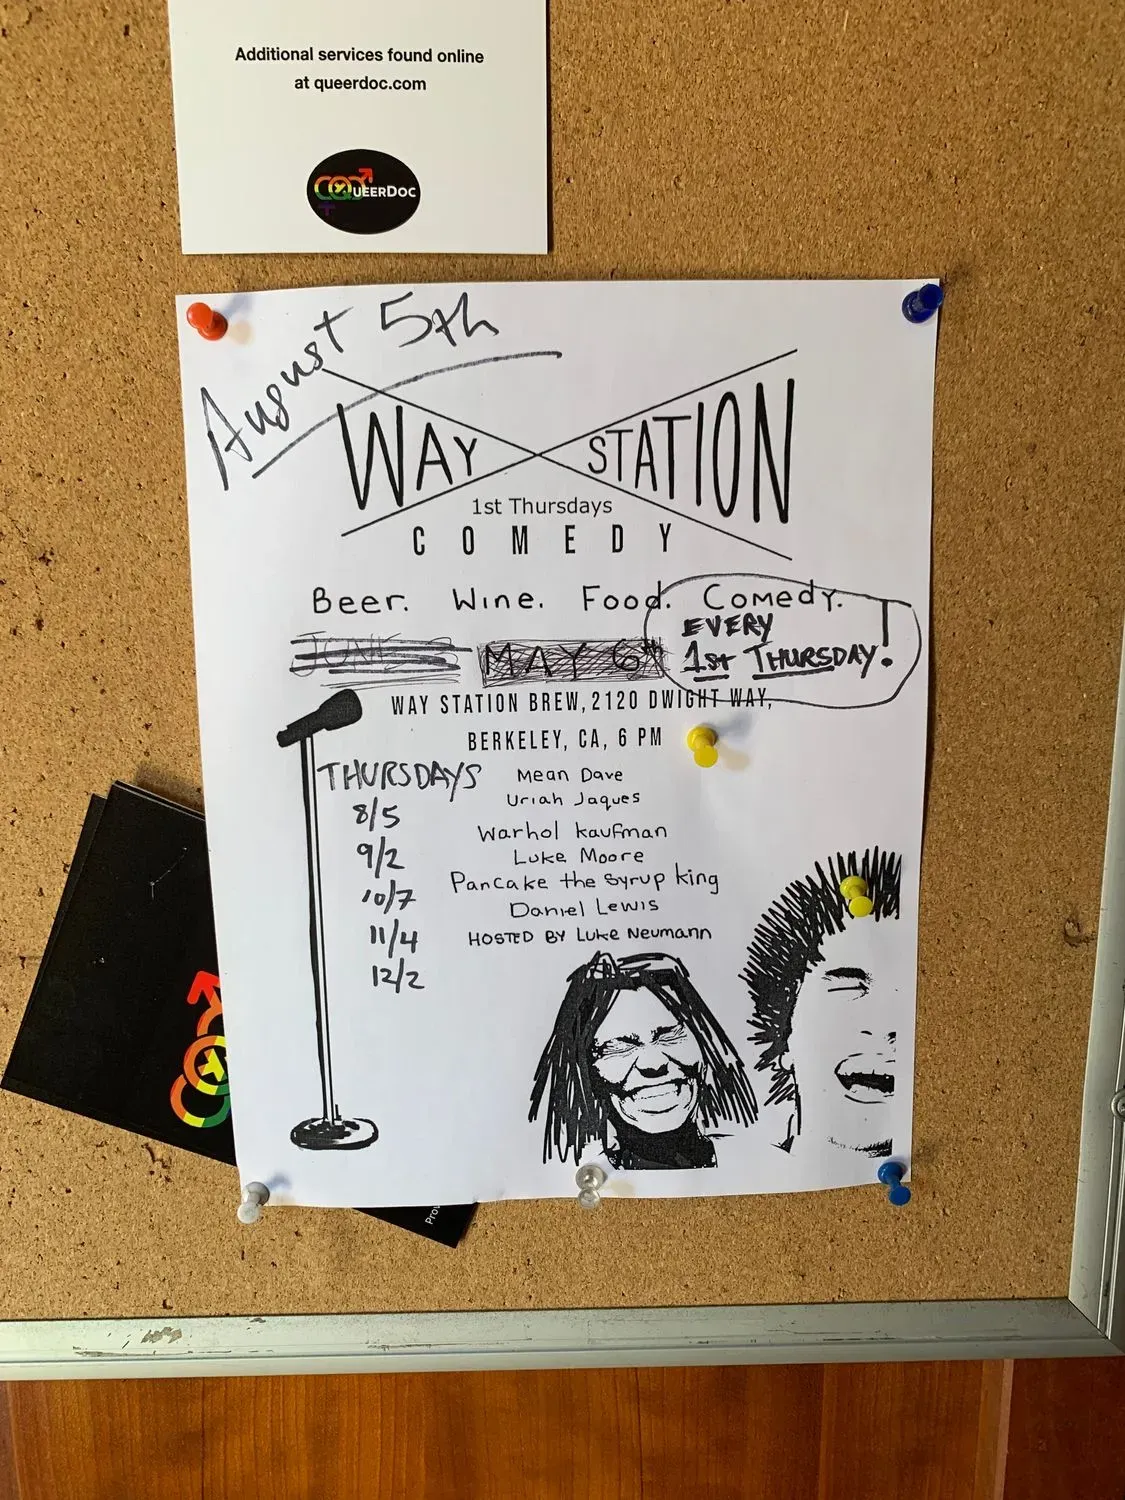 Additional services found online
at queerdoc.com
QUEERDOC
August 5th
WAY STATION
1st Thursdays
COMEDY
Beer. Wine. Food. Comedy.
EVERY
1st THURSDAY!
MAY 6th
WAY STATION BREW, 2120 DWIGHT WAY,
BERKELEY, CA, 6 PM
THURSDAYS
8/5
9/2
10/7
11/4
12/2
Mean Dave
Uriah Jaques
Warhol Kaufman
Luke Moore
Pancake the Syrup King
Daniel Lewis
HOSTED BY Luke Neumann